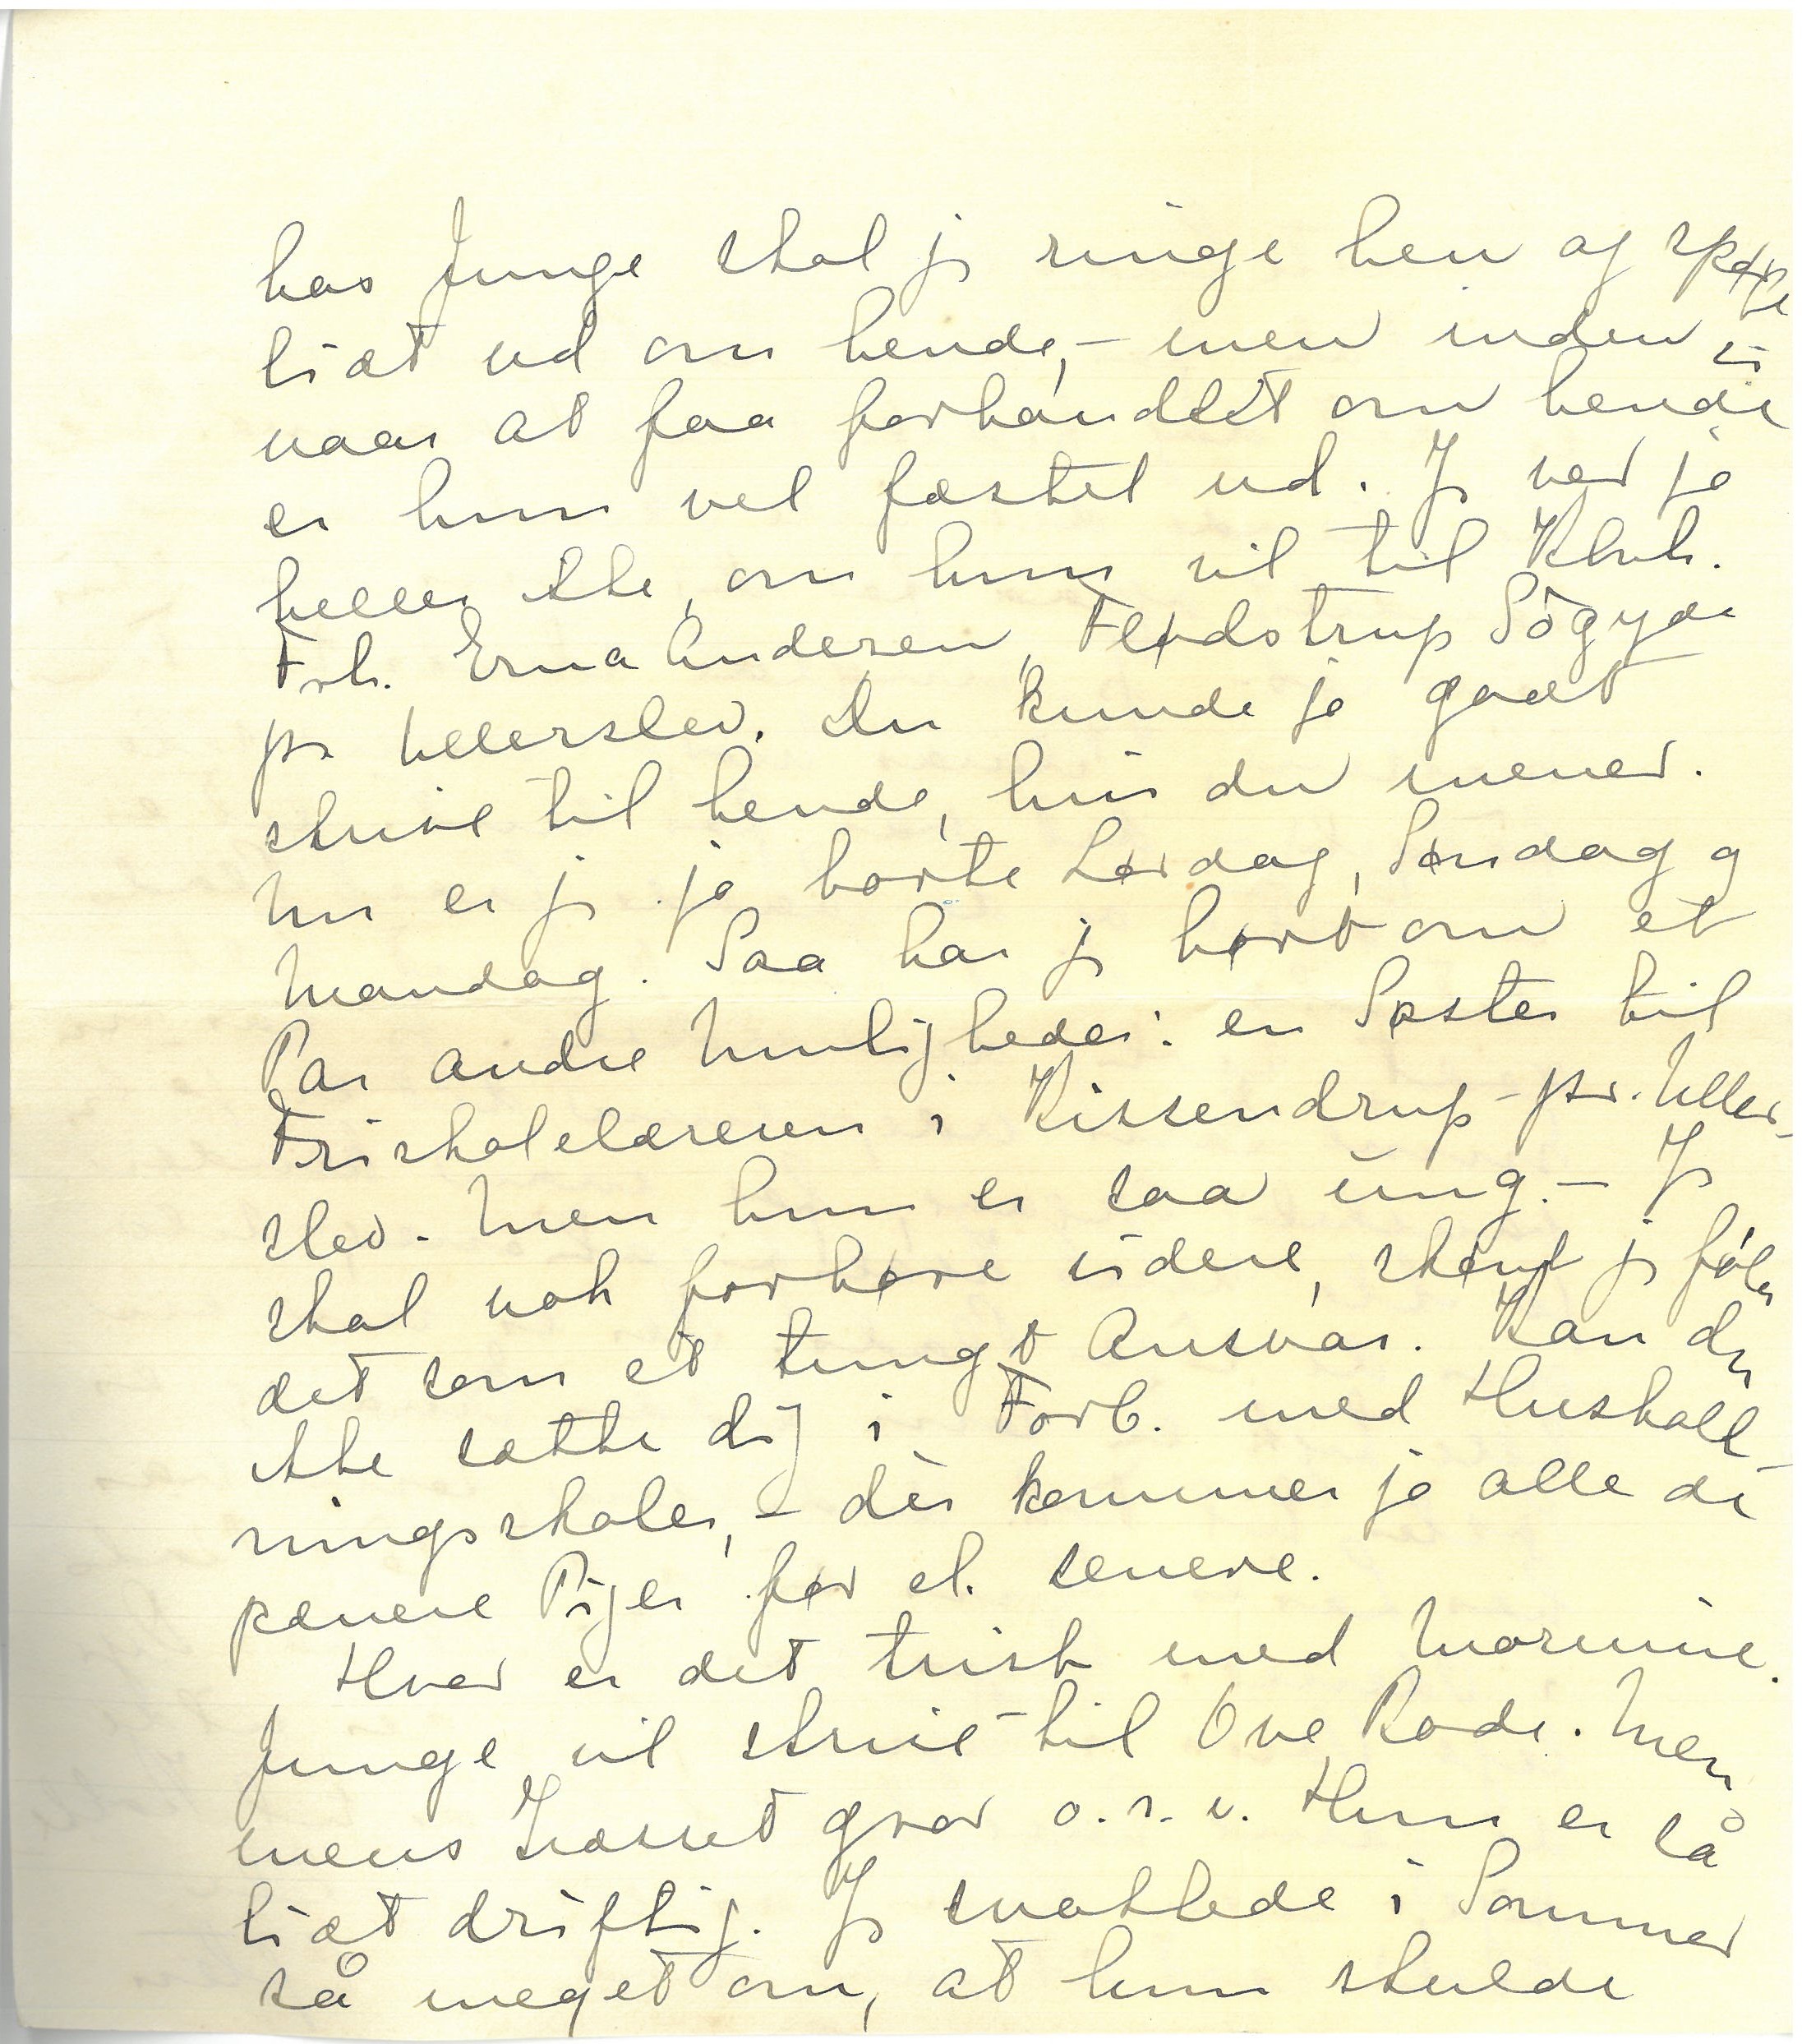 hos Junge skal jg ringe hen og spørge
lidt ud om hende, – men inden vi
naar at faa forhandlet om hende
er hun vel fæstet ud. Jg ved jo
heller ikke, om hun vil til Kbnh.
Frk. Erna Andersen, Flødstrup Sögyde
pr Ullerslev. Du kunde jo godt
skrive til hende, hvis du mener.
Nu er jg jo borte Lørdag, Søndag og
Mandag. Saa har jg hørt om et
Par andre Muligheder: en Søster til
Friskolelæreren i Kissendrup – pr. Uller-
slev. Men hun er saa ung. – Jg
skal nok forhøre videre, skønt jg føler
det som et tungt Ansvar. Kan du
ikke sætte dig i Forb. med Hushold-
ningsskoler, – dér kommer jo alle de
pænere Piger før el. senere.
Hvor er det trist med Mornine.
Junge vil skrive til Ove Rode. Men
mens Græsset gror o.s.v. Hun er så
lidt driftig. Jg snakkede i Sommer
så meget om, at hun skulde